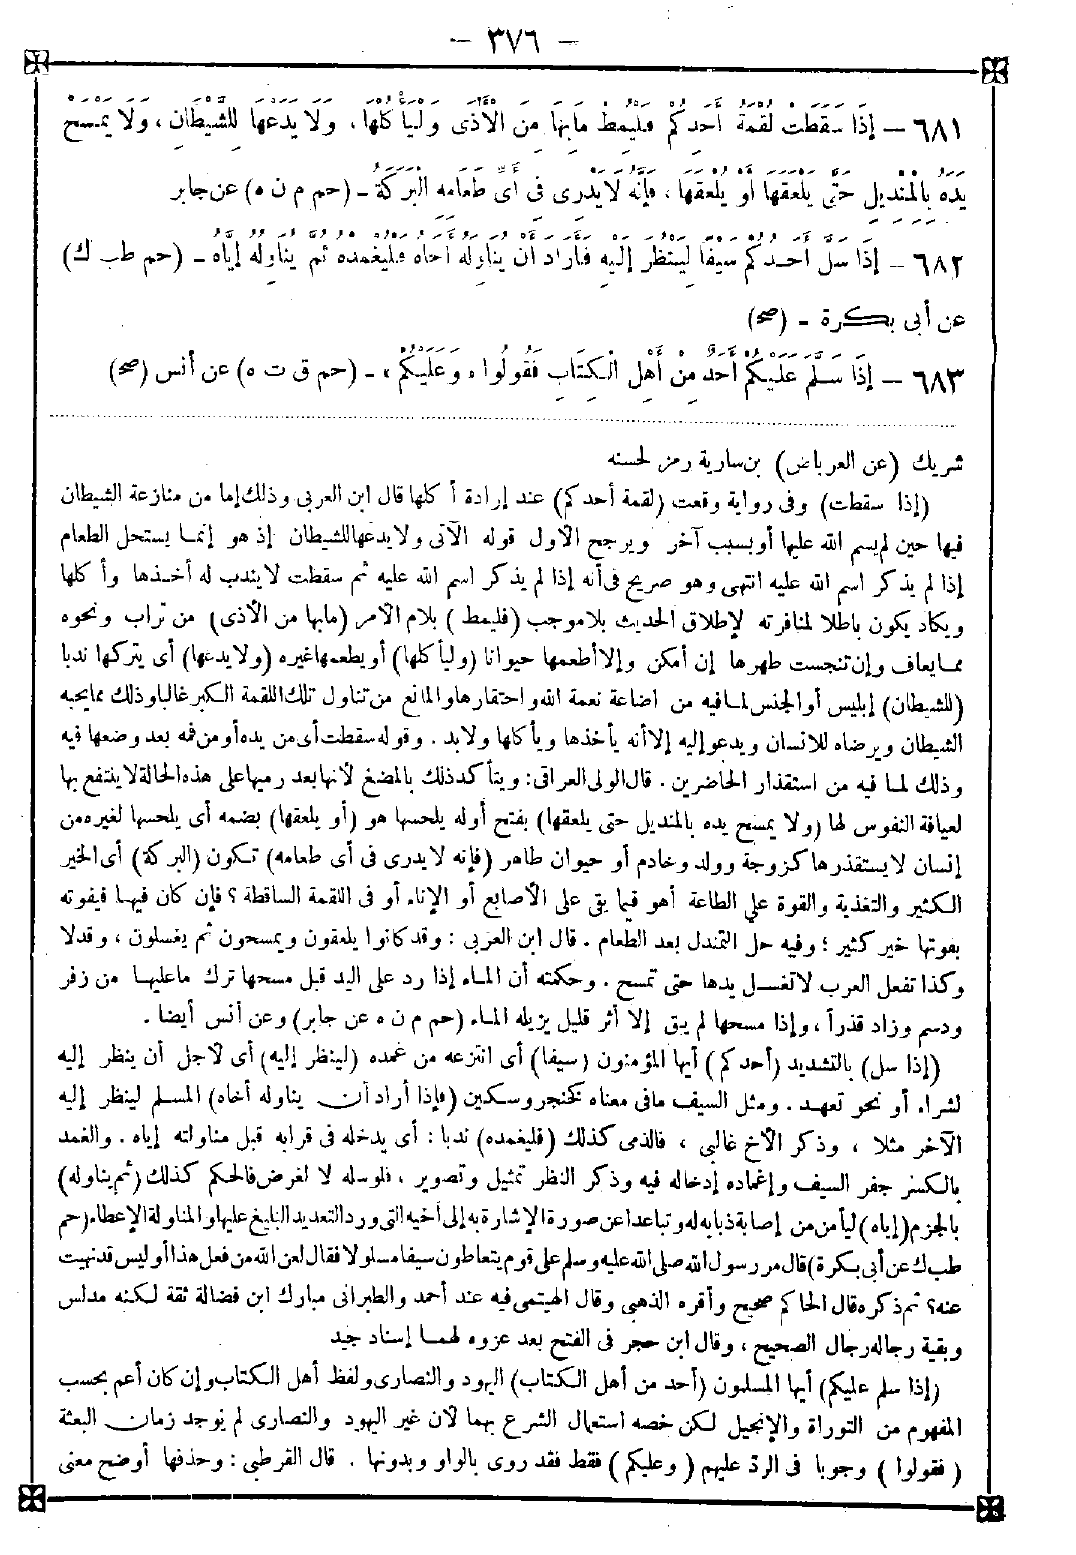 - ٣٧٦ -
٦٨١ - إِذَا سَقَطَتْ لُقْمَةُ أَحَدِكُمْ فَلْيُمِطْ مَا بِهَا مِنَ الْأَذَى وَلْيَأْكُلْهَا، وَلَا يَدَعْهَا لِلشَّيْطَانِ، وَلَا يَمْسَحْ
يَدَهُ بِالْمِنْدِيلِ حَتَّى يَلْعَقَهَا أَوْ يُلْعِقَهَا، فَإِنَّهُ لَا يَدْرِى فِى أَىِّ طَعَامِهِ الْبَرَكَةُ - (حم م ن ه) عن جابر
٦٨٢ - إِذَا سَلَّ أَحَدُكُمْ سَيْفًا لِيَنْظُرَ إِلَيْهِ فَأَرَادَ أَنْ يُنَاوِلَهُ أَخَاهُ فَلْيُغْمِدْهُ ثُمَّ يُنَاوِلْهُ إِيَّاهُ - (حم طب ك)
عن أبى بكرة - (صح)
٦٨٣ - إِذَا سَلَّمَ عَلَيْكُمْ أَحَدٌ مِنْ أَهْلِ الْكِتَابِ فَقُولُوا «وَعَلَيْكُمْ» - (حم ق ت ه) عن أنس (صح)
شريك (عن العرباض) بن سارية رمز لحسنه
(إذا سقطت) وفى رواية وقعت (لقمة أحدكم) عند إرادة أكلها قال ابن العربى وذلك إما من منازعة الشيطان
فيها حين لم يسم الله عليها أو بسبب آخر ويرجح الأول قوله الآتى ولا يدعها للشيطان إذ هو إنما يستحل الطعام
إذا لم يذكر اسم الله عليه انتهى وهو صريح فى أنه إذا لم يذكر اسم الله عليه ثم سقطت لا يندب له أخذها وأكلها
ويكاد يكون باطلا لمنافرته لإطلاق الحديث بلا موجب (فليمط) بلام الأمر (ما بها من الأذى) من تراب ونحوه
مما يعاف وإن تنجست طهرها إن أمكن وإلا أطعمها حيوانا (وليأكلها) أو يطعمها غيره (ولا يدعها) أى يتركها ندبا
(للشيطان) إبليس أو الجنس لما فيه من اضاعة نعمة الله واحتقارها والمانع من تناول تلك اللقمة الكبر غالبا وذلك مما يحبه
الشيطان ويرضاه للانسان ويدعو إليه إلا أنه يأخذها ويأكلها ولا بد . وقوله سقطت أى من يده أو من فمه بعد وضعها فيه
وذلك لما فيه من استقذار الحاضرين . قال الولى العراقى: ويتأكد ذلك بالمضغ لأنها بعد رميها على هذه الحالة لا ينتفع بها
لعيافة النفوس لها (ولا يمسح يده بالمنديل حتى يلعقها) بفتح أوله يلحسها هو (أو يلعقها) بضمه أى يلحسها لغيره من
إنسان لا يستقذرها كزوجة وولد وخادم أو حيوان طاهر (فإنه لا يدرى فى أى طعامه) تكون (البركة) أى الخير
الكثير والتغذية والقوة على الطاعة أهو فيما بقى على الأصابع أو الإناء أو فى اللقمة الساقطة ؟ فإن كان فيها فيفوته
بفوتها خير كثير ؛ وفيه حل التمندل بعد الطعام . قال ابن العربى : وقد كانوا يلعقون ويمسحون ثم يغسلون ، وقد لا
وكذا تفعل العرب لا تغسل يدها حتى تمسح . وحكمته أن الماء إذا رد على اليد قبل مسحها ترك ما عليها من زفر
ودسم وزاد قذرا ، وإذا مسحها لم يبق إلا أثر قليل يزيله الماء (حم م ن ه عن جابر) وعن أنس أيضا .
(إذا سل) بالتشديد (أحدكم) أيها المؤمنون (سيفا) أى انتزعه من غمده (لينظر إليه) أى لأجل أن ينظر إليه
لشراء أو نحو تعهد . ومثل السيف ما فى معناه كخنجر وسكين (فإذا أراد أن يناوله أخاه) المسلم لينظر إليه
الآخر مثلا ، وذكر الأخ غالبى ، فالذمى كذلك (فليغمده) ندبا : أى يدخله فى قرابه قبل مناولته إياه . والغمد
بالكسر جفر السيف وإغماده إدخاله فيه وذكر النظر تمثيل وتصوير ، فلو سله لا لغرض فالحكم كذلك (ثم يناوله)
بالجزم (إياه) ليأمن من إصابة ذبابه له وتباعدا عن صورة الإشارة به إلى أخيه التى ورد التهديد البليغ عليها والمناولة الإعطاء (حم
طب ك عن أبى بكرة) قال مر رسول الله صلى الله عليه وسلم على قوم يتعاطون سيفا مسلولا فقال لعن الله من فعل هذا أو ليس قد نهيت
عنه؟ ثم ذكره قال الحاكم صحيح وأقره الذهبى وقال الهيتمى فيه عند أحمد والطبرانى مبارك ابن فضالة ثقة لكنه مدلس
وبقية رجاله رجال الصحيح ، وقال ابن حجر فى الفتح بعد عزوه لهما إسناد جيد
(إذا سلم عليكم) أيها المسلمون (أحد من أهل الكتاب) اليهود والنصارى ولفظ أهل الكتاب وإن كان أعم بحسب
المفهوم من التوراة والإنجيل لكن خصه استعمال الشرع بهما لأن غير اليهود والنصارى لم يوجد زمان البعثة
(فقولوا) وجوبا فى الرد عليهم (وعليكم) فقط فقد روى بالواو وبدونها . قال القرطبى : وحذفها أوضح معنى